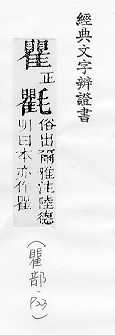 經典文字辨證書
瞿正
俗出爾雅注陸德
明曰本亦作瞿
(瞿部.